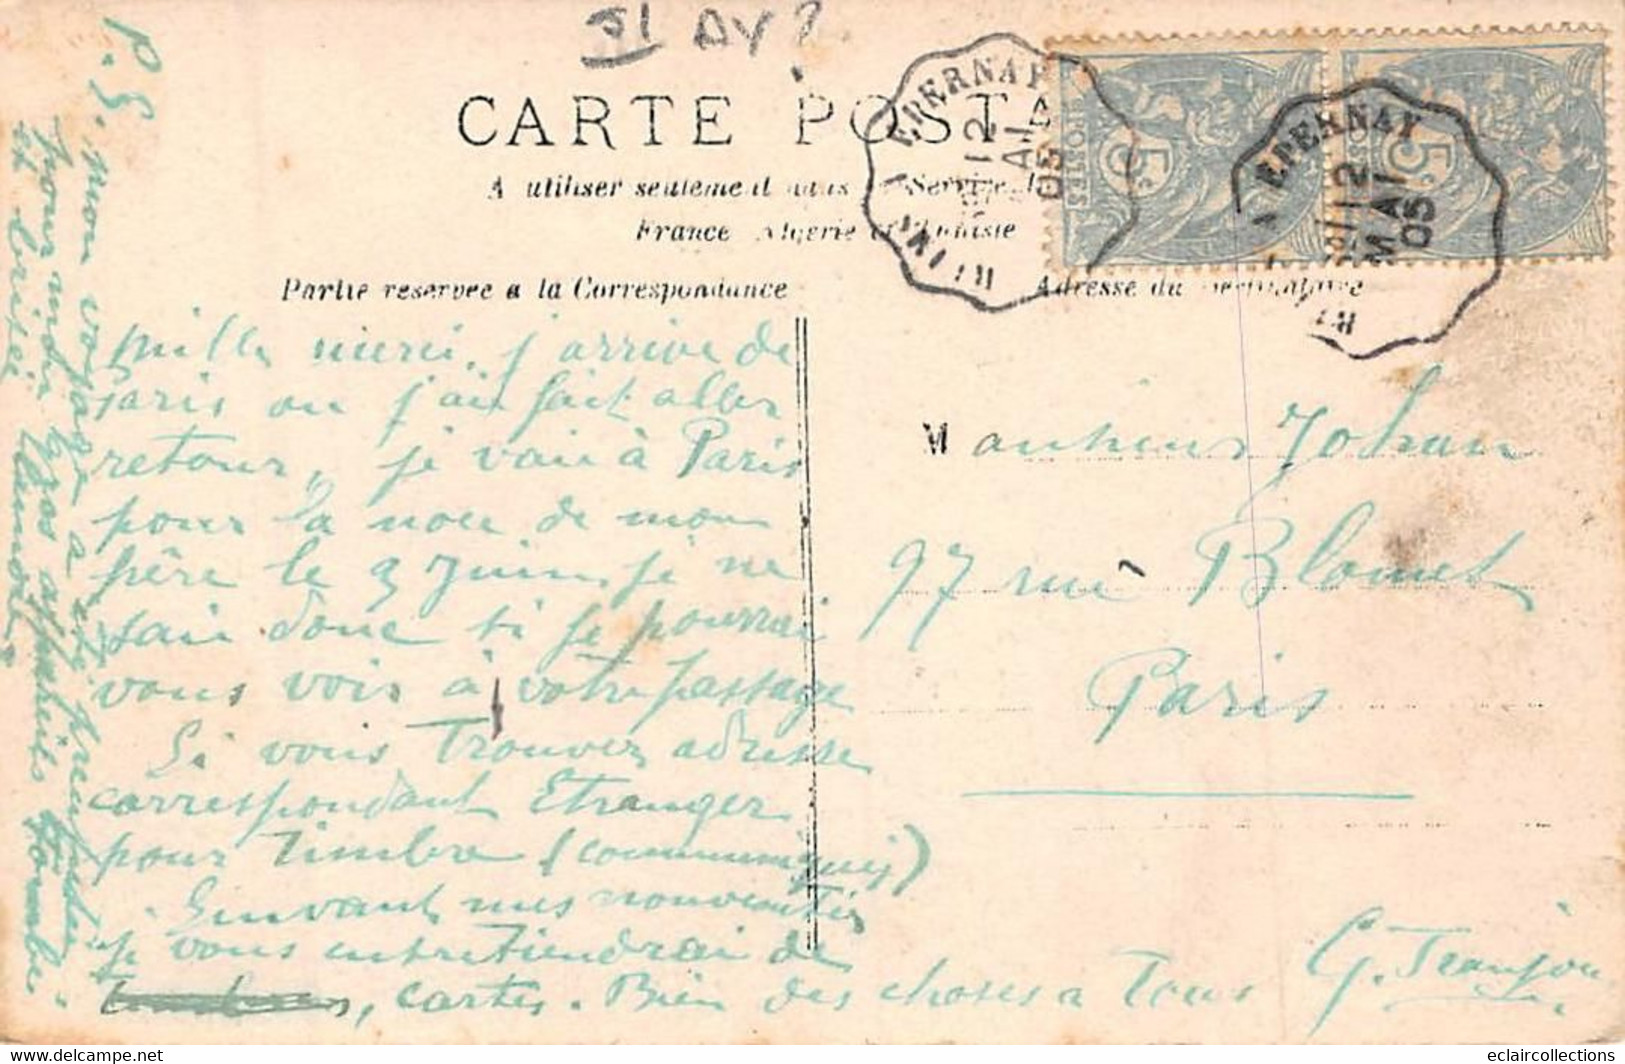 51 AY ?
CARTE POSTA
A utiliser seulement dans le Service
France Algerie et Tunisie
Partie reservee a la Correspondance
Adresse du destinataire
EPERNAY
12
MAI
05
EPERNAY
12
MAI
05
5c
5c
Mille merci, j'arrive de
Paris ou j'ai fait aller
retour, je vais à Paris
pour la noce de mon
père le 3 Juin, je ne
sais donc si je pourrai
vous vois à votre passage
Si vous trouvez adresse
correspondant Etranger
pour Timbre (communiquez)
Suivant mes nouveautés
je vous entretiendrai de
cartes. Bien des choses a Tous
P.S. mon voyage a été
pour un gros appareils tombé
et brisée
Monsieur Johan
97 rue Blomet
Paris
eclaircollections